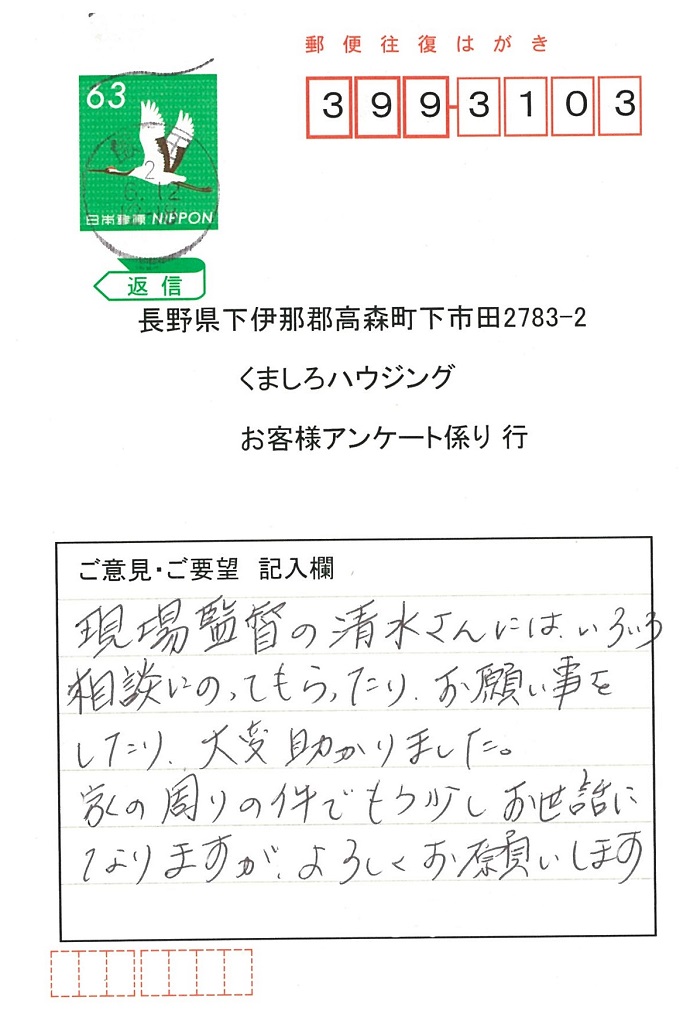 郵便往復はがき
399-3103
63
2
6.12
日本郵便 NIPPON
返信
長野県下伊那郡高森町下市田2783-2
くましろハウジング
お客様アンケート係り 行
ご意見・ご要望 記入欄
現場監督の清水さんには、いろいろ
相談にのってもらったり、お願い事を
したり、大変助かりました。
家の周りの件でもう少しお世話に
なりますが、よろしくお願いします